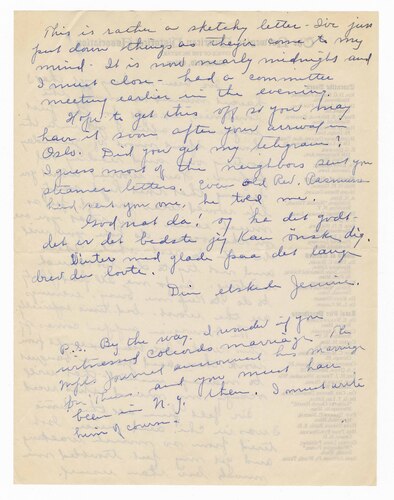 This is rather a sketchy letter - I've just
put down things as they've come to my
mind. It is now nearly midnight and
I must close - had a committee
meeting earlier in the evening.
Hope to get this off so you may
have it soon after your arrival in
Oslo. Did you get my telegram?
I guess most of the neighbors sent you
steamer letters. Even old Rev. Rasmussen
had sent you one, he told me.
God nat da! og ha det godt -
det er det bedste jeg kan önske dig.
Venter med glæde paa det lange
brev du lovte.
Din elskede Jennie.
P.S. By the way, I wonder if you
witnessed marriage. The
Mpls Journal announced his marriage
for Thurs. and you must have
been in N.Y. then. I must write
him of course.